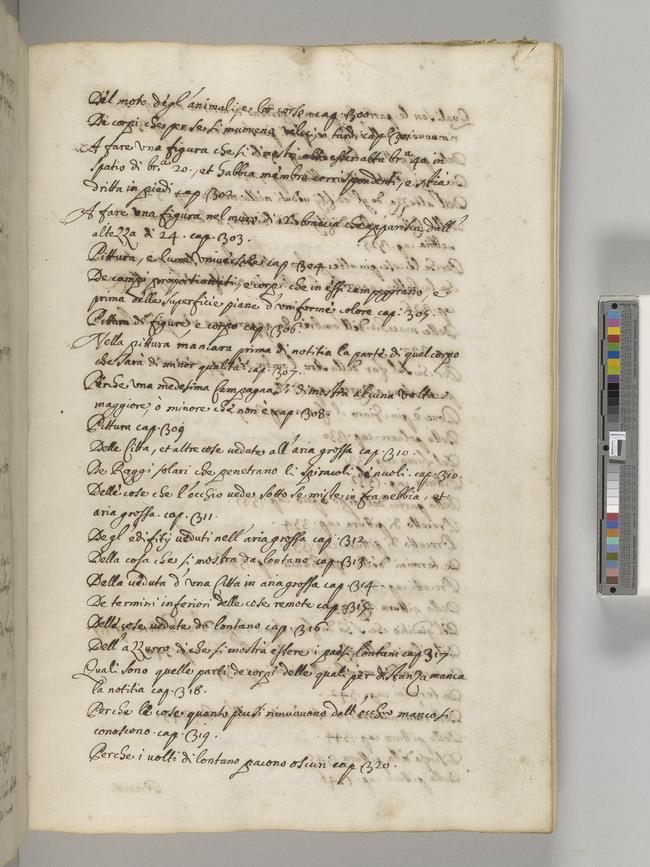 Del moto degl'animali, e lor corso cap. 300
De corpi che per se si muovono veloci, o tardi cap. 301
A fare una figura che si dimostri esser alta br.a 40 in
spatio di br.a 20. et habbia membra corrispondenti, e stia
dritta in piedi cap. 302
A fare una figura nel muro di 12 braccia che apparisca dall'
altezza di 24. cap. 303.
Pittura, e lume universale cap. 304.
De campi proportionati, e corpi che in essi campeggiano, e
prima delle superficie piane d'uniforme colore cap. 305.
Pittura di figure e corpo cap. 306.
Nella pittura mancara prima di notitia la parte di quel corpo
che sarà di minor qualità cap. 307.
Perche una medesima Campagna si dimostra alcuna volta
maggiore, ò minore che non è cap. 308.
Pittura cap. 309
Delle Citta, et altre cose vedute all'aria grossa cap. 310.
De Raggi solari che penetrano li spiracoli de nuoli. cap. 310.
Delle cose che l'occhio vede sotto se miste in fra nebbia, et
aria grossa. cap. 311.
Degl'edifitij veduti nell'aria grossa cap. 312.
Della cosa che si mostra da lontano cap. 313.
Della veduta d'una Citta in aria grossa cap. 314.
De termini inferiori delle cose remote cap. 315.
Delle cose vedute da lontano cap. 316
Dell'azzurro di che si mostra essere i paesi lontani cap. 317.
Quali sono quelle parti de corpi delle quali per distanza manca
la notitia cap. 318.
Perche le cose quanto piu si rimuovono dall'occhio manco si
conoscono cap. 319.
Perche i volti di lontano paiono oscuri cap. 320.